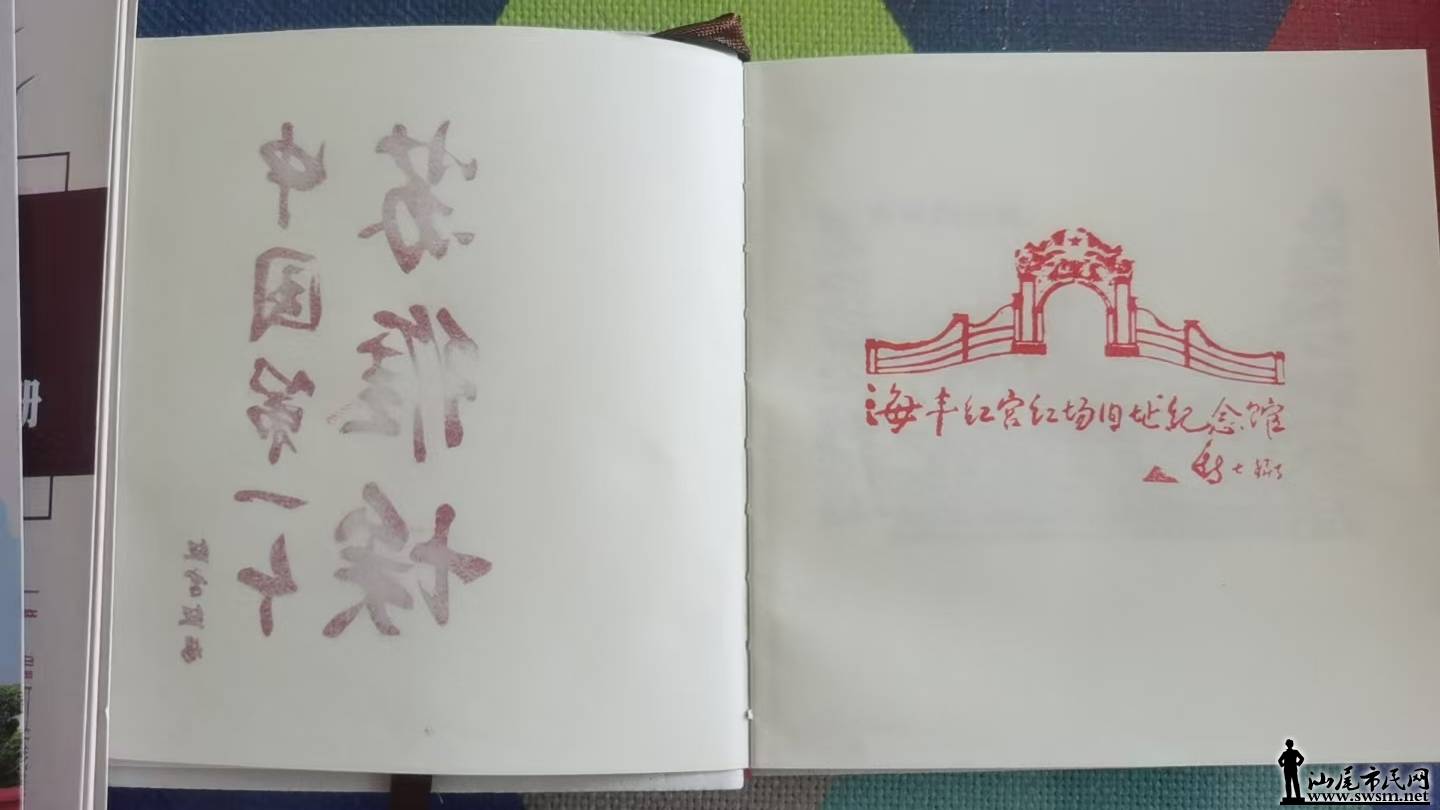 红宫红场
中国第一个
苏维埃
海丰红宫红场旧址纪念馆
册
汕尾市民网
www.swsm.net